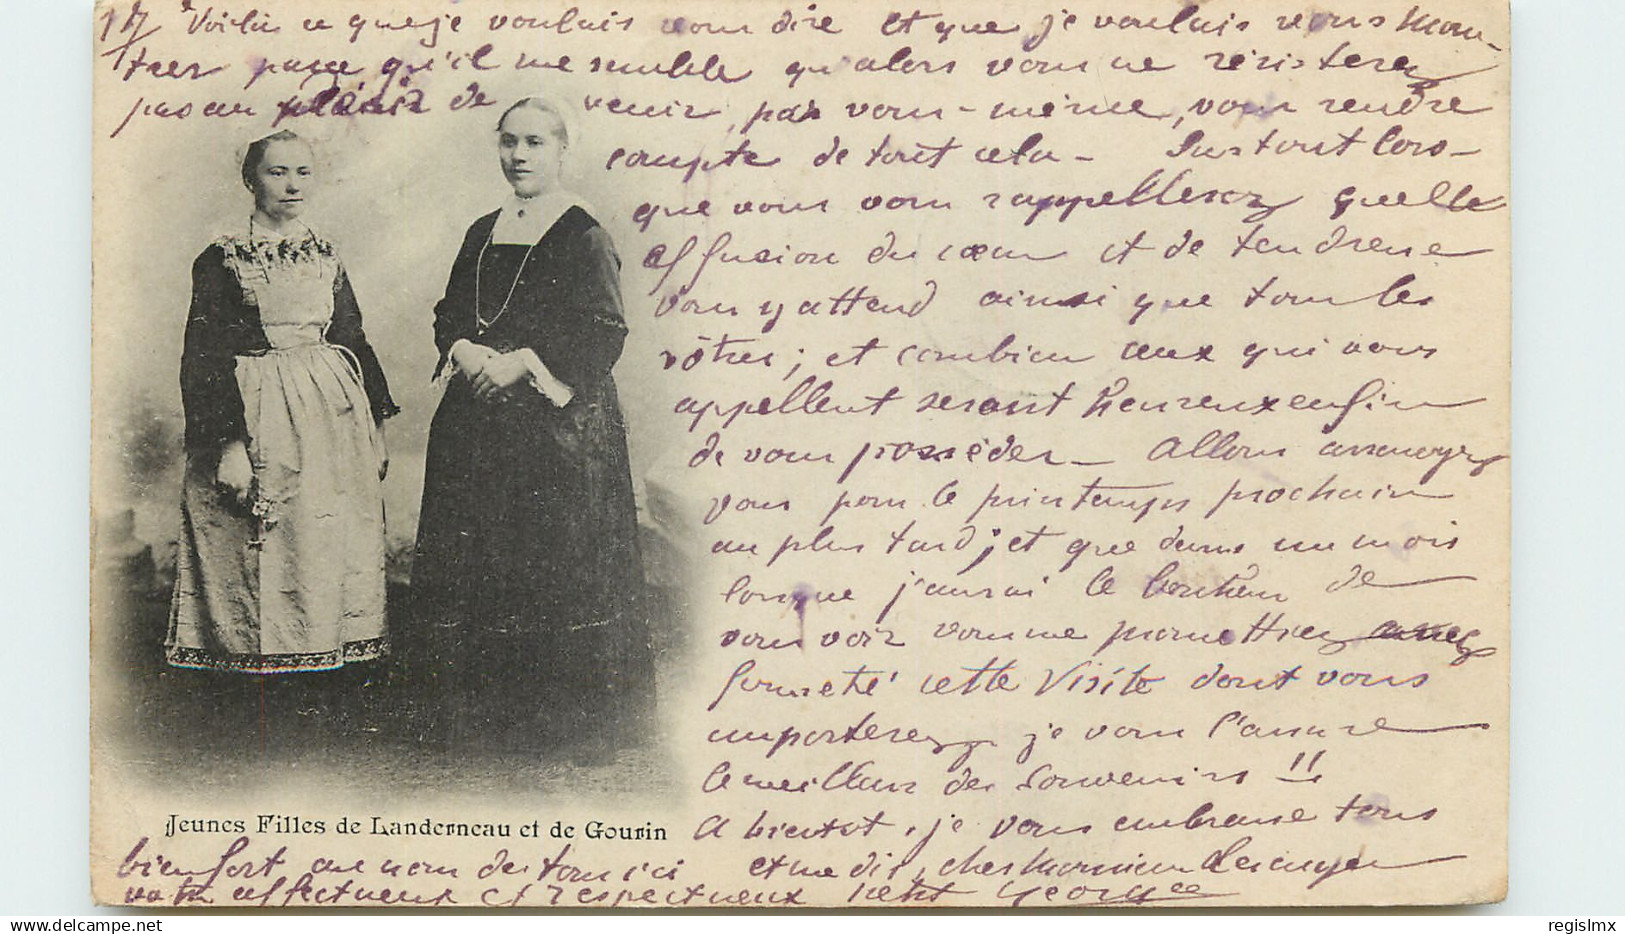 17/ Voilà ce que je voulais vous dire et que je voulais vous mon-
trer parce qu'il me semble qu'alors vous ne résisterez
pas au plaisir de venir, par vous-même, vous rendre
compte de tout cela - Surtout lors-
que vous vous rappellerez quelle
effusion du cœur et de tendresse
vous y attend ainsi que tous les
vôtres; et combien ceux qui vous
appellent seront heureux enfin
de vous posséder - Allons
vous pour le printemps prochain
au plus tard; et que dans un mois
lorsque j'aurai le bonheur de
vous voir vous me promettrez
cette visite dont vous
emporterez je vous l'assure
le meilleur des souvenirs !!
Jeunes Filles de Landerneau et de Gourin
A bientôt, je vous embrasse tous
bien fort au nom de tous ici et me dis, cher Monsieur
votre affectueux et respectueux petit Georges
regislmx